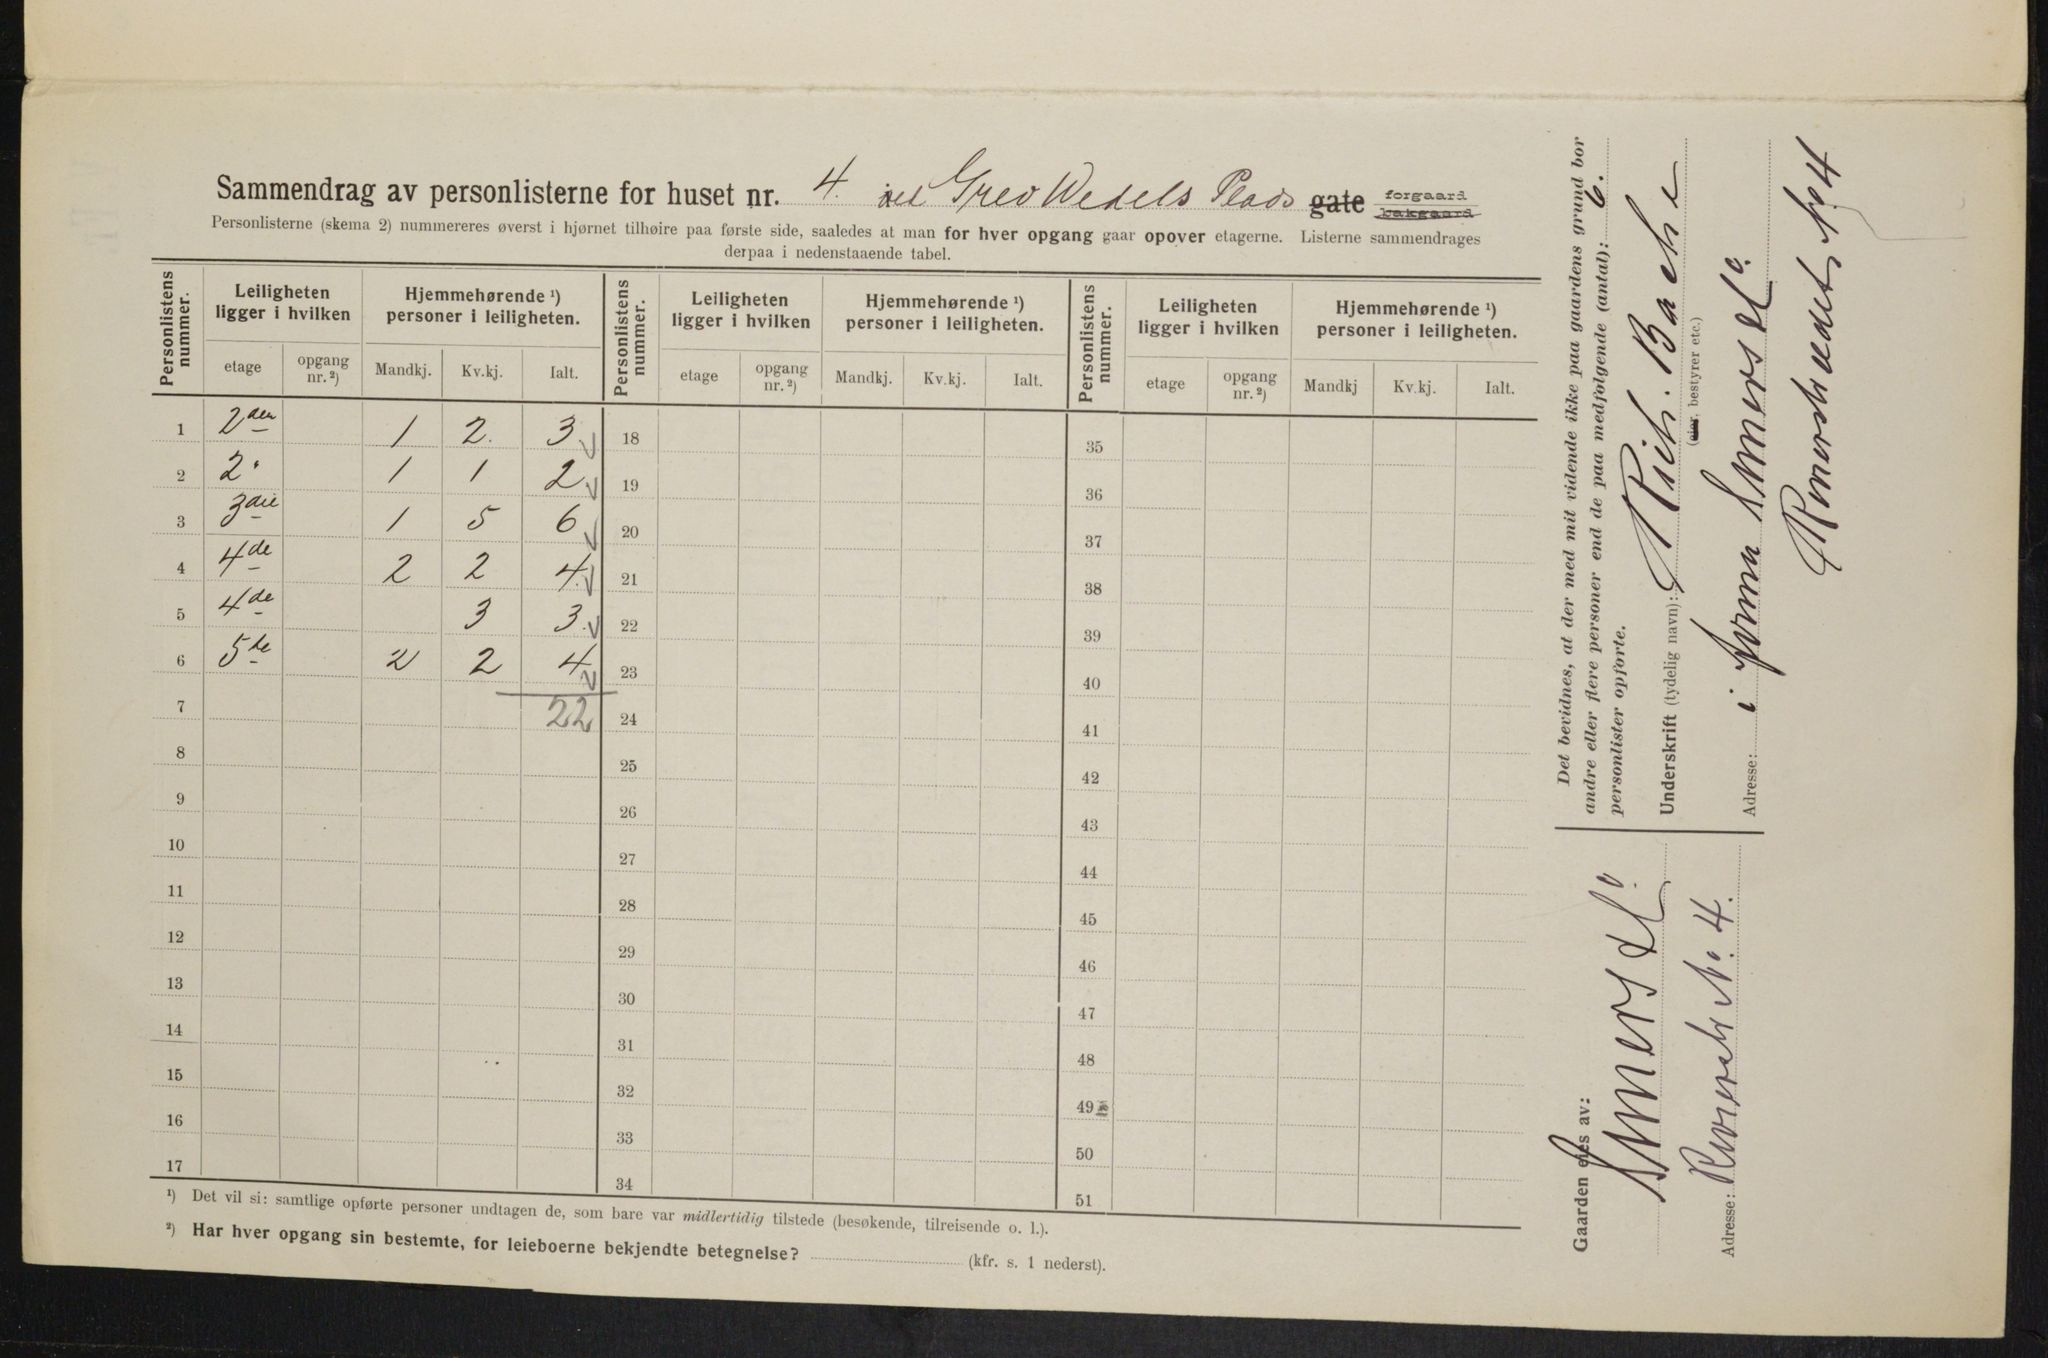 Sammendrag av personlisterne for huset nr. 4. ved Grev Wedels Plads gate forgaard bakgaard
Personlisterne (skema 2) nummereres øverst i hjørnet tilhøire paa første side, saaledes at man for hver opgang gaar opover etagerne. Listerne sammendrages
derpaa i nedenstaaende tabel.
Personlistens nummer. Leiligheten ligger i hvilken Hjemmehørende ¹) personer i leiligheten. Personlistens nummer. Leiligheten ligger i hvilken Hjemmehørende ¹) personer i leiligheten. Personlistens nummer. Leiligheten ligger i hvilken Hjemmehørende ¹) personer i leiligheten.
etage opgang nr. ²) Mandkj. Kv.kj. Ialt. etage opgang nr. ²) Mandkj. Kv.kj. Ialt. etage opgang nr. ²) Mandkj Kv.kj. Ialt.
1 2den 1 2. 3 18 35
2 2" 1 1 2 19 36
3 3die 1 5 6 20 37
4 4de 2 2 4. 21 38
5 4de 3 3. 22 39
6 5te 2 2 4 23 40
7 22 24 41
8 25 42
9 26 43
10 27 44
11 28 45
12 29 46
13 30 47
14 31 48
15 32 49
16 33 50
17 34 51
¹) Det vil si: samtlige opførte personer undtagen de, som bare var midlertidig tilstede (besøkende, tilreisende o. l.).
²) Har hver opgang sin bestemte, for leieboerne bekjendte betegnelse? (kfr. s. 1 nederst).
Det bevidnes, at der med mit vidende ikke paa gaardens grund bor
andre eller flere personer end de paa medfølgende (antal): 6.
personlister opførte.
Underskrift (tydelig navn): Rich. Bache
(eier, bestyrer etc.)
Adresse: i firma
No 4
Gaarden eies av:
Adresse: No. 4.